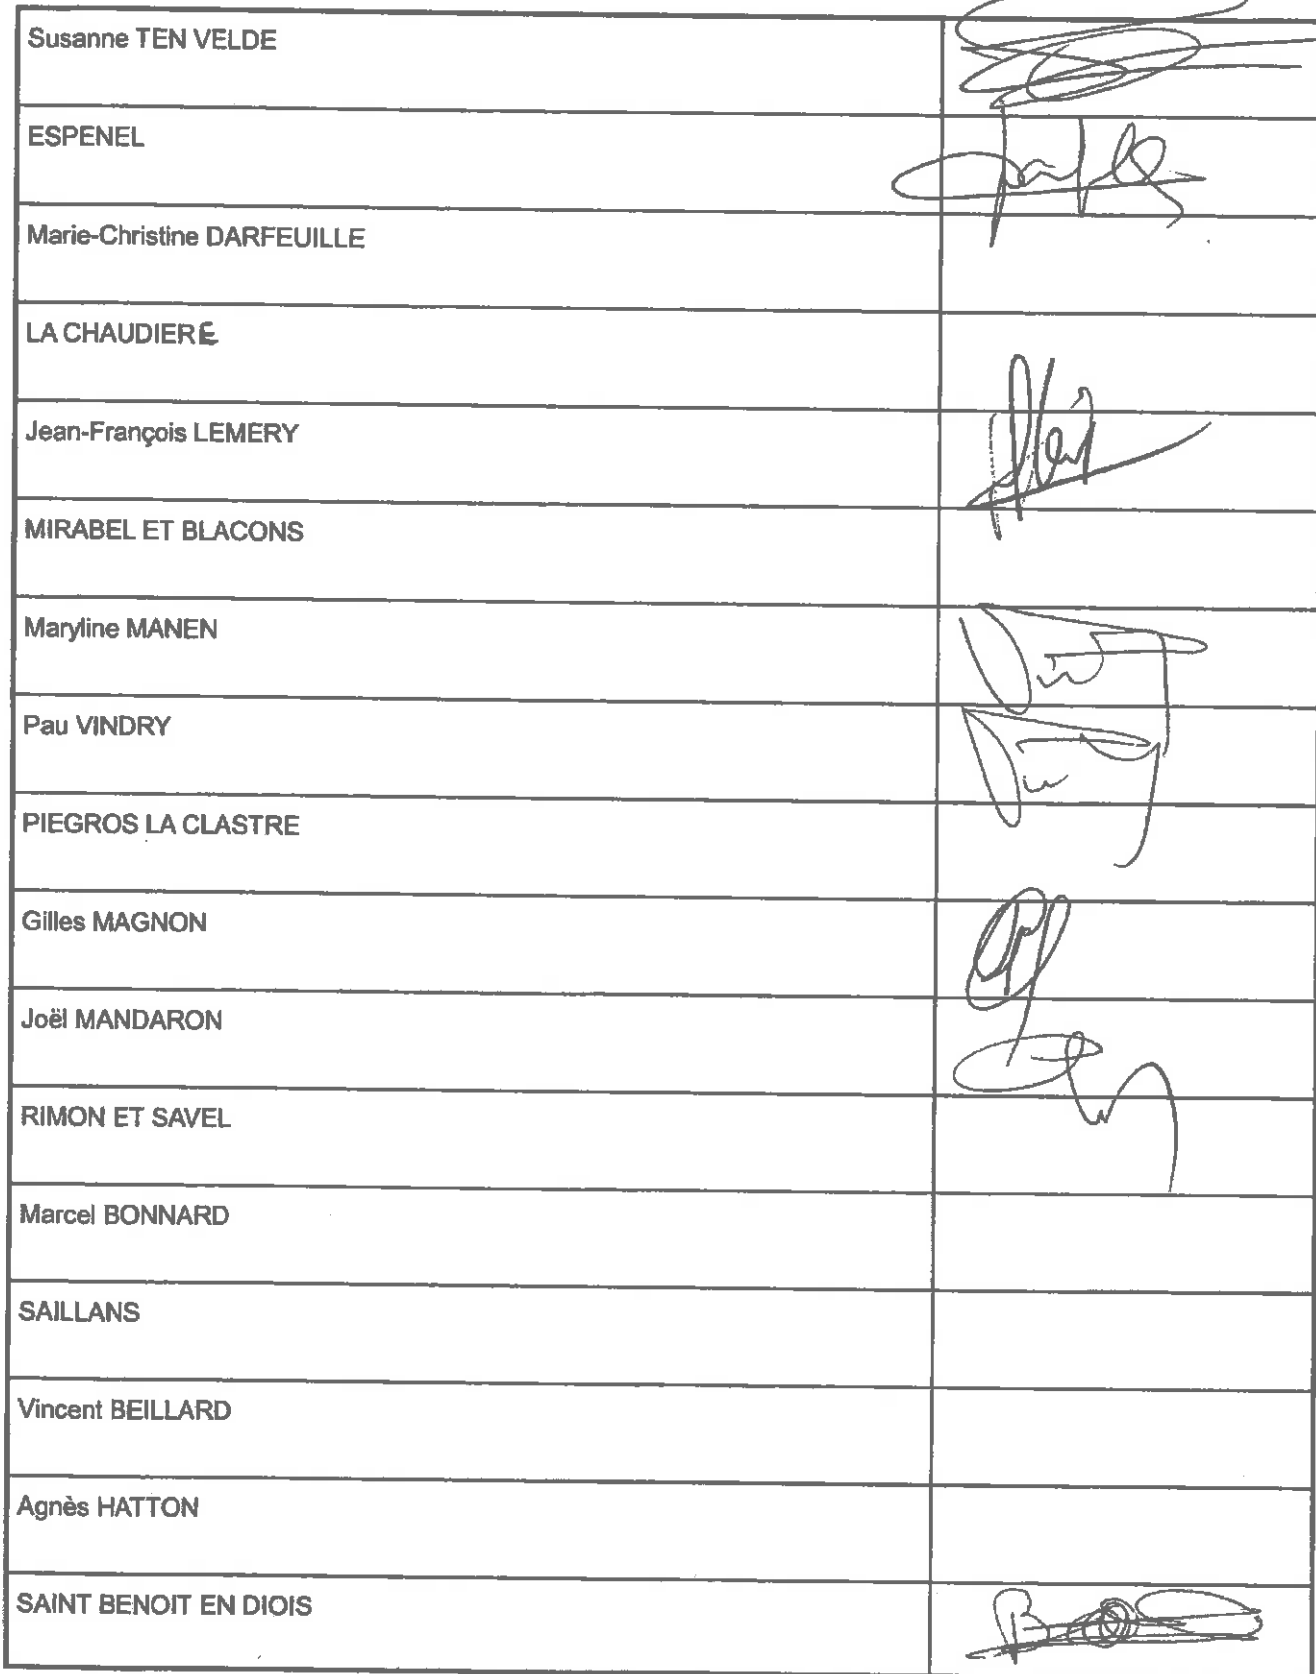 Susanne TEN VELDE
ESPENEL
Marie-Christine DARFEUILLE
LA CHAUDIERE
Jean-François LEMERY
MIRABEL ET BLACONS
Maryline MANEN
Pau VINDRY
PIEGROS LA CLASTRE
Gilles MAGNON
Joël MANDARON
RIMON ET SAVEL
Marcel BONNARD
SAILLANS
Vincent BEILLARD
Agnès HATTON
SAINT BENOIT EN DIOIS